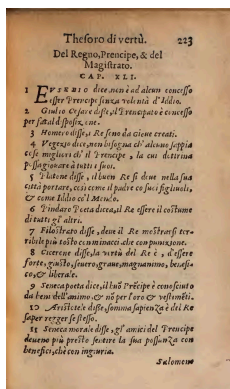 Thesoro di vertù. 223
Del Regno, Prencipe, & del
Magistrato.
CAP. XLI.
1 EVSEBIO dice, non è ad alcun concesso
esser Prencipe senza volontà d'Iddio.
2 Giulio Cesare disse, il Prencipato è concesso
per fatal dispositione.
3 Homero disse, i Re sono da Gioue creati.
4 Vegetio dice, non bisogna ch'alcuno sappia
cose migliori ch'il Prencipe, la cui dottrina
passi giouare à tutti i suoi.
5 Platone disse, il buon Re si deue nella sua
città portare, così come il padre co suoi figliuoli,
& come Iddio co'l Mondo.
6 Pindaro Poeta dicea, il Re essere il costume
di tutti gl'altri.
7 Filostrato disse, deue il Re mostrarsi ter-
ribile più tosto con minacci che con punitione.
8 Cicerone disse, la virtù del Re è, d'essere
forte, giusto, seuero, graue, magnanimo, benefi-
co, & liberale.
9 Seneca poeta dice, il buō Prēcipe è conosciuto
da beni dell'animo, & nō per l'oro & vestimēti.
10 Aristotele disse, somma sapienza è del Re
saper regger se stesso.
11 Seneca morale disse, gl'amici del Prencipe
deueno più presto sentire la sua possanza con
benefici, che con ingiuria.
Salomone